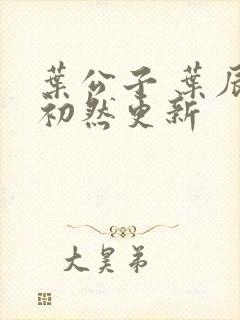 葉公子 葉辰
初然更新
大昊弟